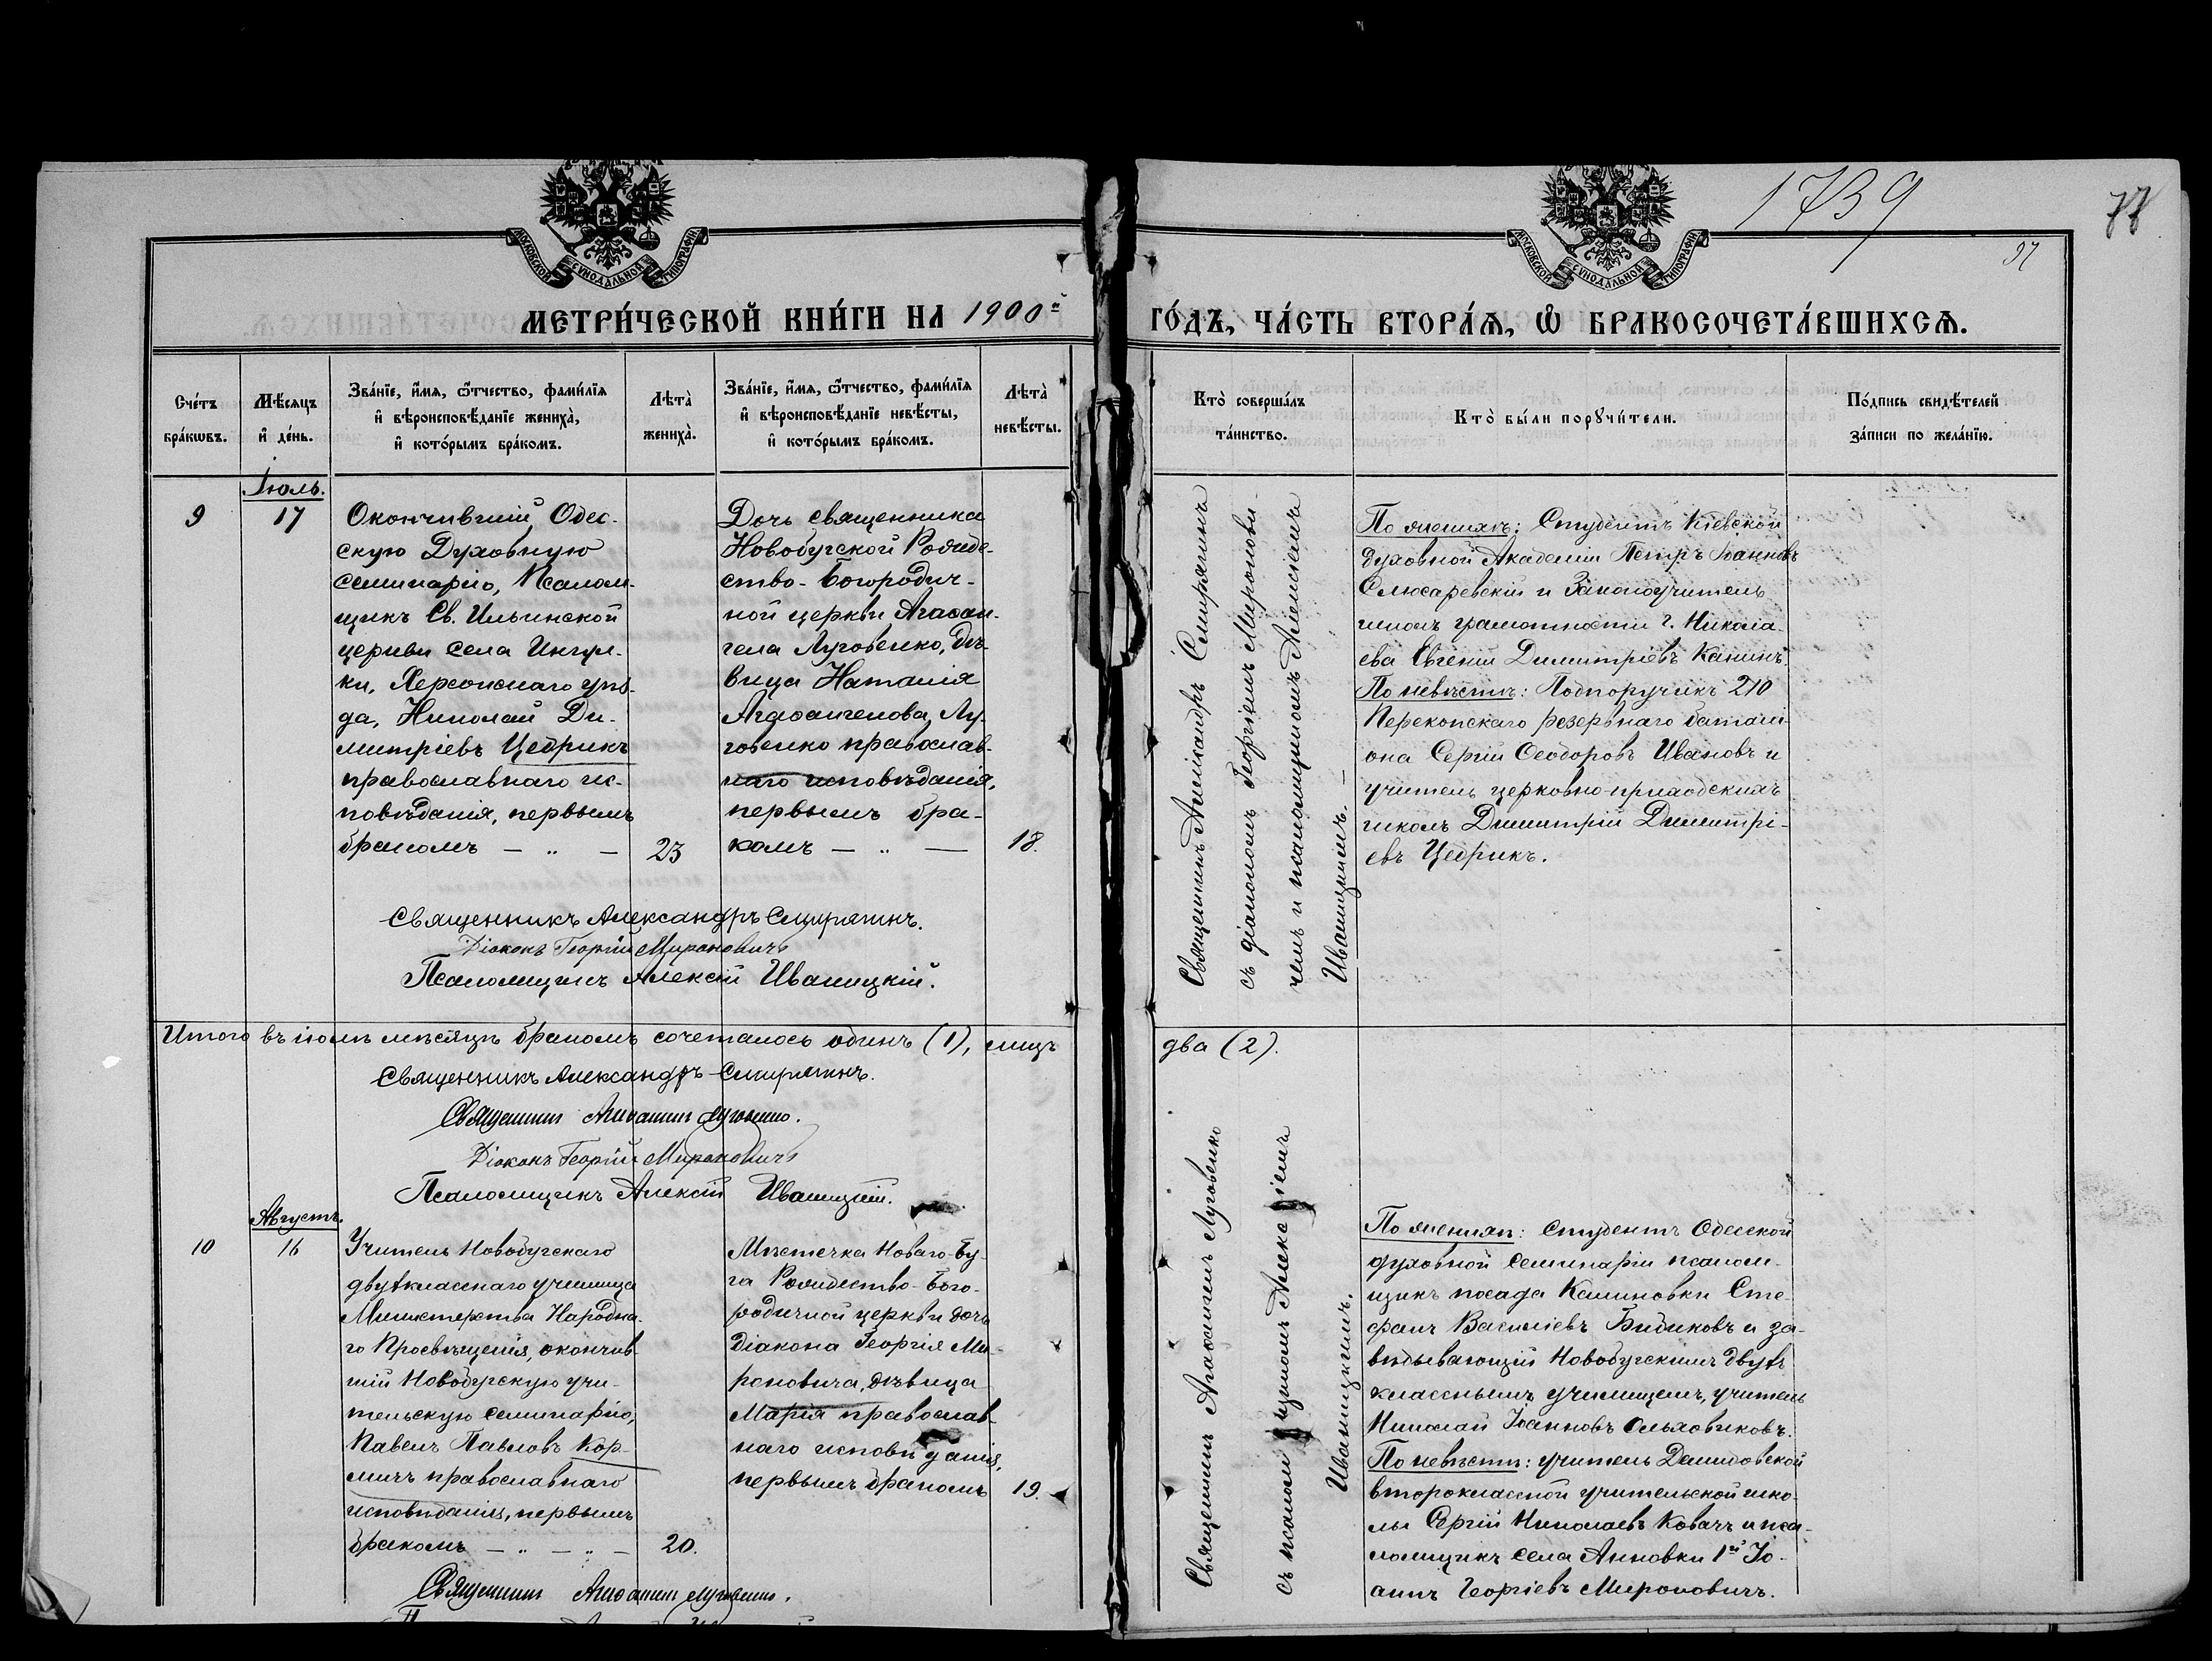 1739
77
37
МОСКОВСКОЙ СѴНОДАЛЬНОЙ ТИПОГРАФІИ
МОСКОВСКОЙ СѴНОДАЛЬНОЙ ТИПОГРАФІИ
МЕТРИ́ЧЕСКОЙ КНИ́ГИ НА 1900й
ГО́ДЪ, ЧА́СТЬ ВТОРА́Я, Ѿ БРАКОСОЧЕТА́ВШИХСЯ.
Сче́тъ бра́кωвъ.
Мѣ́сяцъ и҆ де́нь.
Зва́нїе, и҆́мя, ѻ҆́тчество, фами́лїя
и҆ вѣроисповѣ́данїе жениха̀,
и҆ кото́рымъ бра́комъ.
Лѣта̀ жениха̀.
Зва́нїе, и҆́мя, ѻ҆́тчество, фами́лїя
и҆ вѣроисповѣ́данїе невѣ́сты,
и҆ кото́рымъ бра́комъ.
Лѣта̀ невѣ́сты.
Кто̀ соверша́лъ та́инство.
Кто̀ бы́ли порꙋчи́тели.
По́дпись свидѣ́телей
за́писи по жела́нїю.
Іюль.
9
17
Окончившій Одес-
скую Духовную
Семинарію, Псалом-
щикъ Св. Ильинской
церкви села Ингул-
ки, Херсонскаго уѣз-
да, Николай Ди-
митріевъ Цебрикъ
православнаго ис-
повѣданія, первымъ
бракомъ — „ —
23
Дочь священника
Новобугской Рожде-
ство-Богородич-
ной церкви Агаѳан-
гела Луговенко, дѣ-
вица Наталія
Агаѳангелова Лу-
говенко православ-
наго исповѣданія,
первымъ бра-
комъ — „ —
18.
Священникъ Александръ Смирягинъ
съ діакономъ Георгіемъ Миронови-
чемъ и псаломщикомъ Алексіемъ
Иваницкимъ. —
По женихѣ: Студентъ Кіевской
духовной Академіи Петръ Іоанновъ
Слюсаревскій и Законоучитель
школъ грамотности г. Никола-
ева Евгеній Димитріевъ Канинъ.
По невѣстѣ: Подпоручикъ 210
Перекопскаго резервнаго баталі-
она Сергій Ѳеодоровъ Ивановъ и
учитель церковно-приходскихъ
школъ Димитрій Димитрі-
евъ Цебрикъ.
Священникъ Александръ Смирягинъ.
Діаконъ Георгій Мироновичъ
Псаломщикъ Алексій Иваницкій.
Итого въ іюлѣ мѣсяцѣ бракомъ сочеталось одинъ (1), лицъ
два (2).
Священникъ Александръ Смирягинъ.
Священникъ Агаѳангелъ Луговенко.
Діаконъ Георгій Мироновичъ
Псаломщикъ Алексій Иваницкій.
Августъ.
10
16
Учитель Новобугскаго
двухкласснаго училища
Министерства Народна-
го Просвѣщенія, окончив-
шій Новобугскую учи-
тельскую семинарію,
Павелъ Павловъ Кор-
мичъ православнаго
исповѣданія, первымъ
бракомъ — „ — „ —
20.
Мѣстечка Новаго-Бу-
га Рождество-Бого-
родичной церкви дочь
діакона Георгія Ми-
роновича, дѣвица
Марія православ-
наго исповѣданія,
первымъ бракомъ
19.
Священникъ Агаѳангелъ Луговенко
съ псаломщикомъ Алексіемъ
Иваницкимъ.
По женихѣ: Студентъ Одесской
духовной семинаріи псалом-
щикъ посада Калиновки Сте-
фанъ Василіевъ Бибиковъ и за-
вѣдывающій Новобугскимъ двухъ
класснымъ училищемъ, учитель
Николай Іоанновъ Ольховиковъ.
По невѣстѣ: учитель Демидовской
второклассной учительской шко-
лы Сергій Николаевъ Ковачъ и пса-
ломщикъ села Анновки 1й Іо-
аннъ Георгіевъ Мироновичъ.
Священникъ Агаѳангелъ Луговенко.